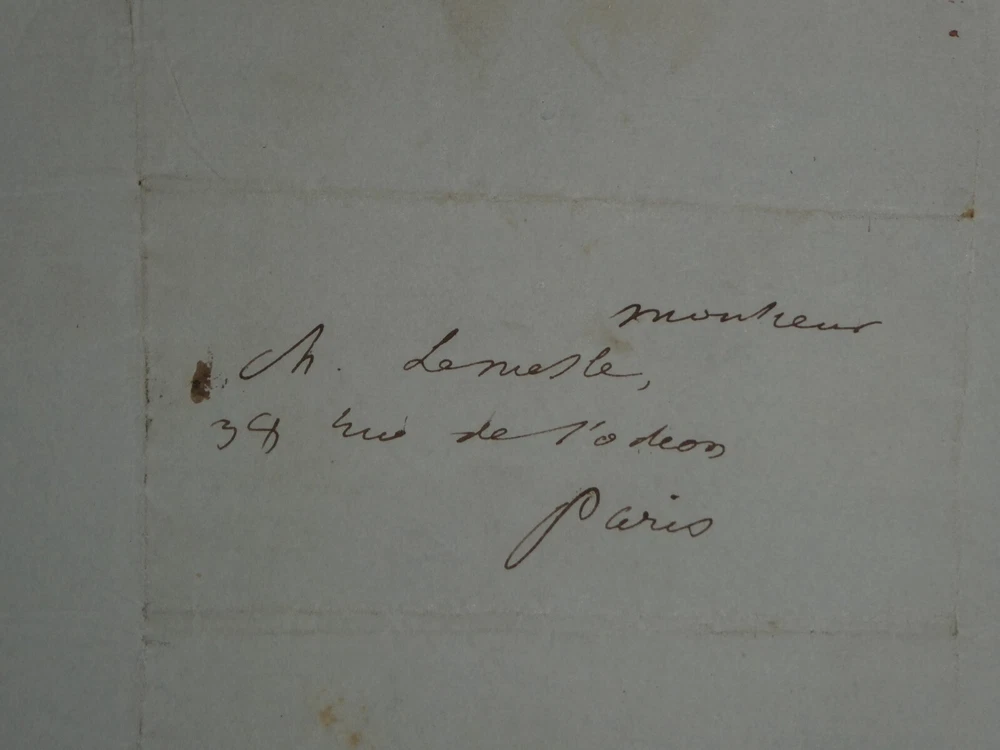 monsieur
Ch. Lemesle,
38 rue de l'odeon
Paris